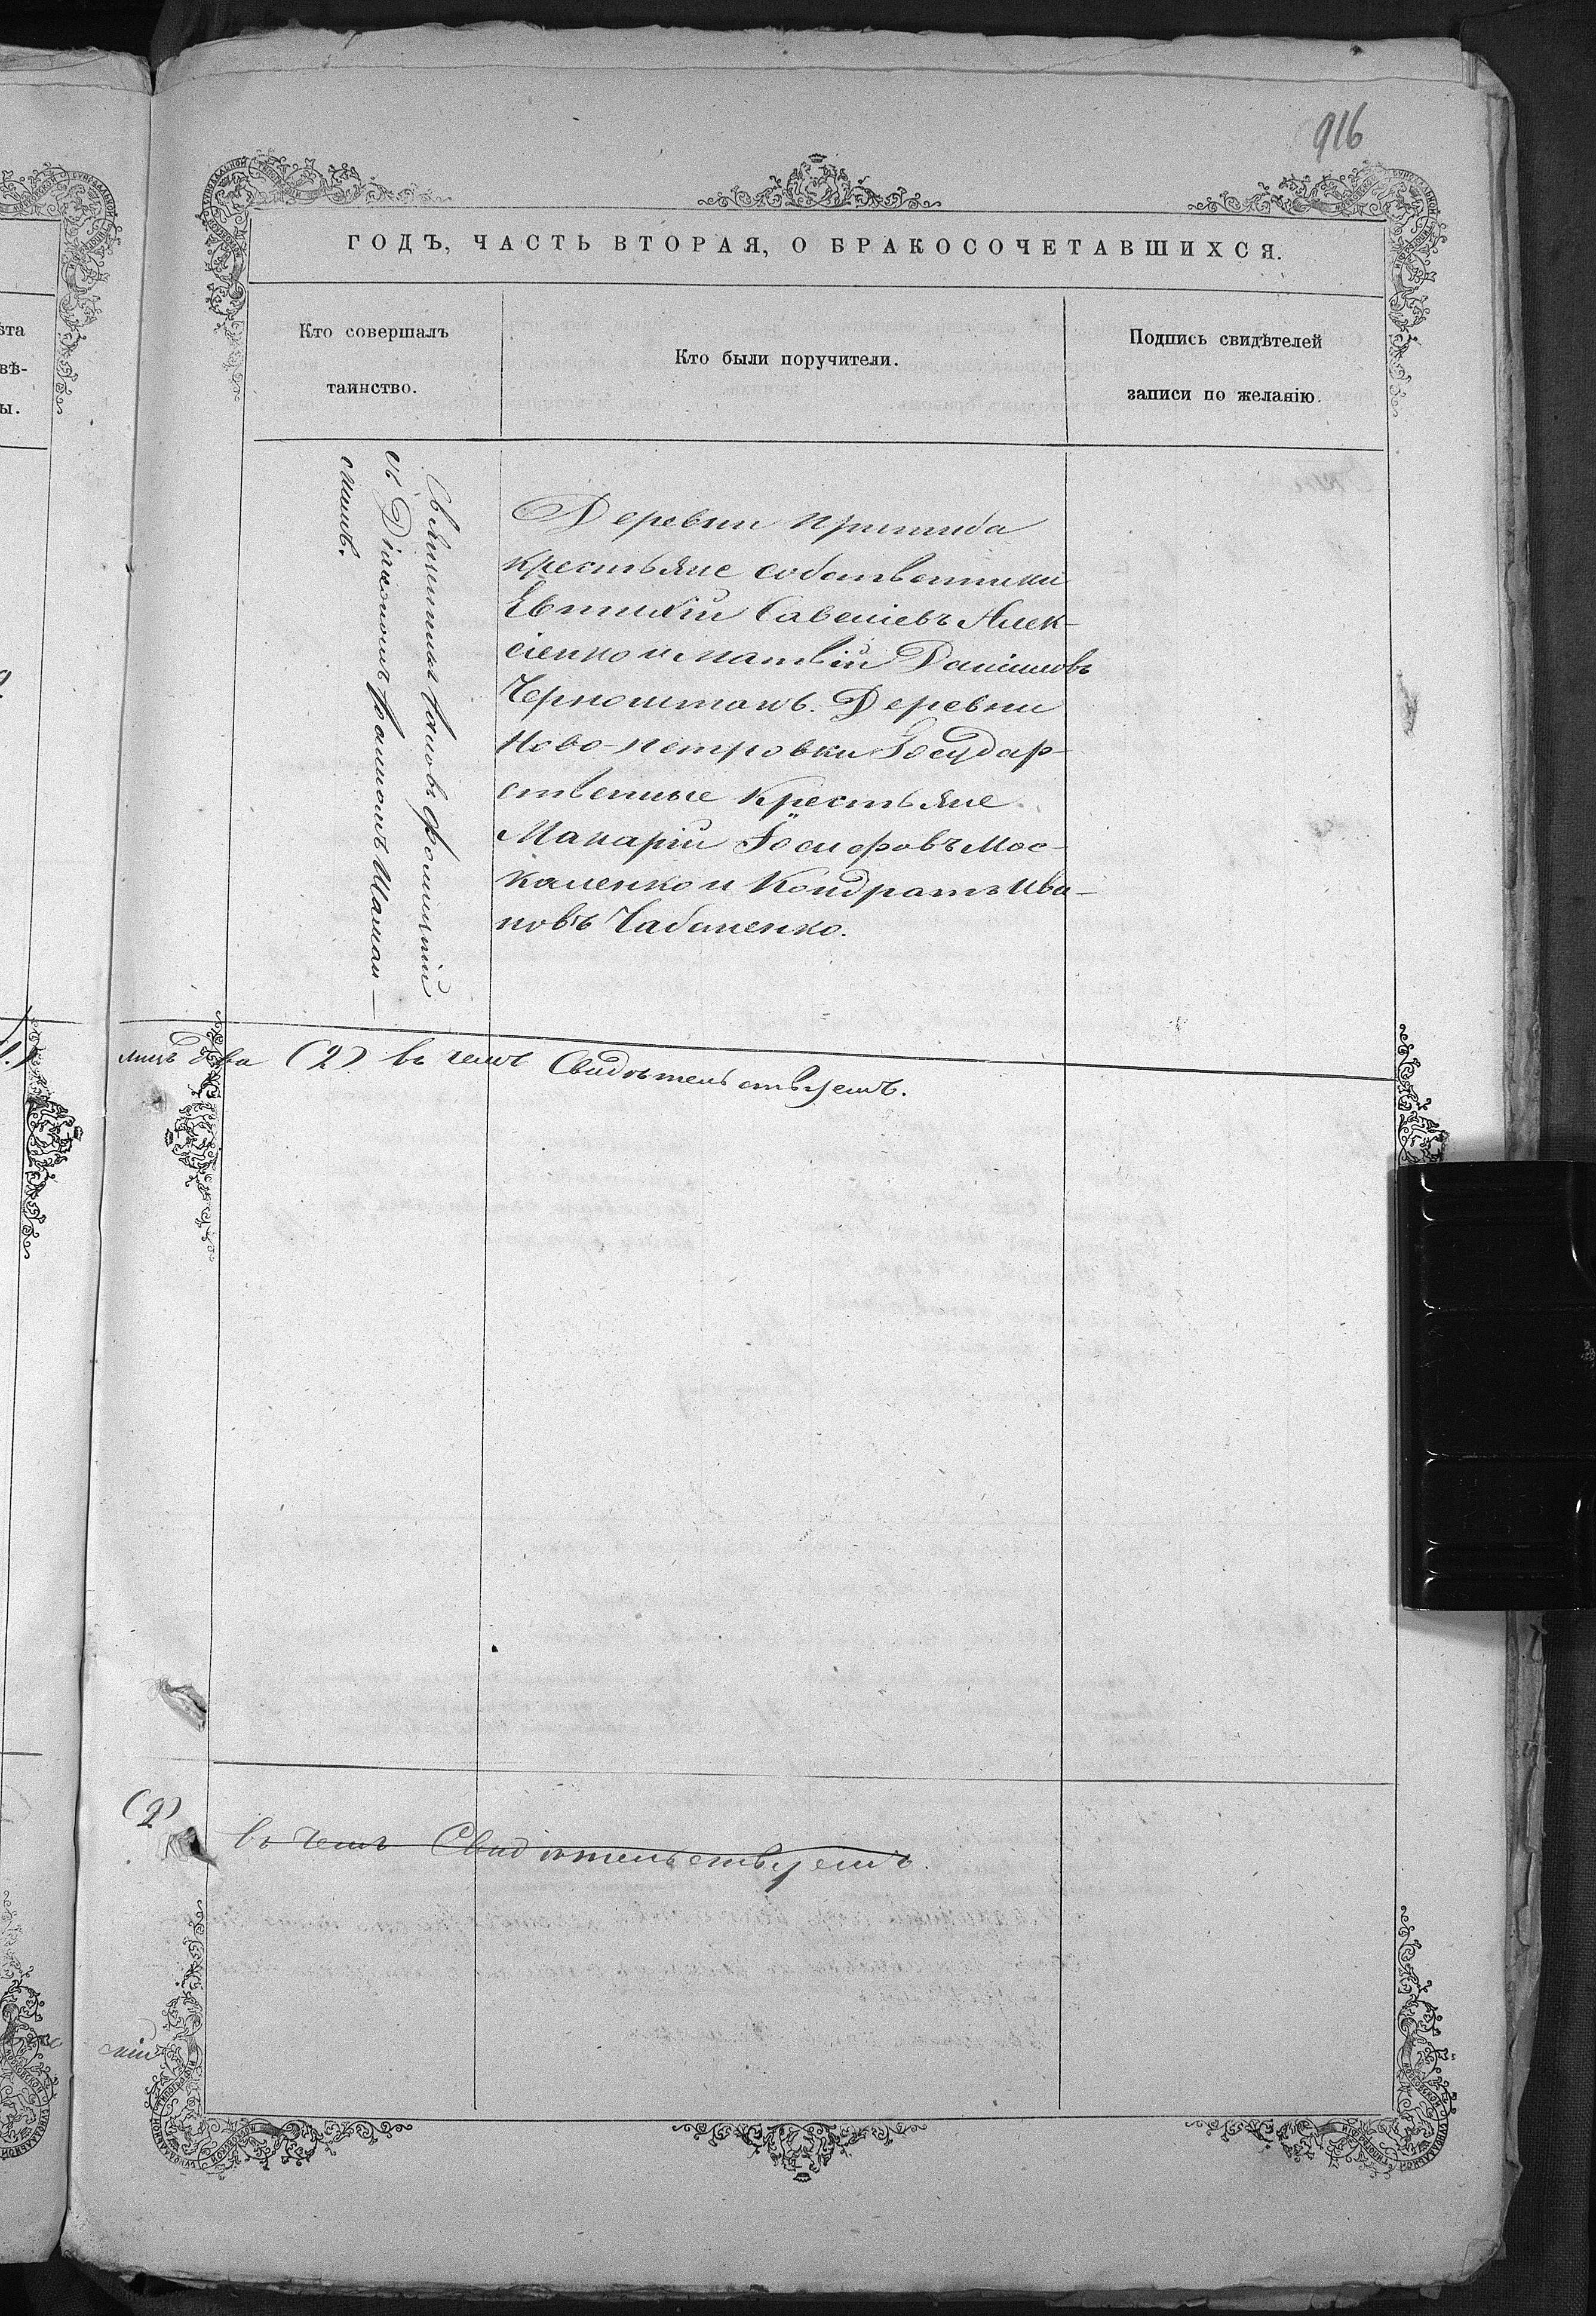 916
ГОДЪ, ЧАСТЬ ВТОРАЯ, О БРАКОСОЧЕТАВШИХСЯ.
Кто совершалъ
таинство.
Кто были поручители.
Подпись свидѣтелей
записи по желанію.
Священникъ Іаковъ Фомицкій
съ Діакономъ
Деревни Пришиба
крестьяне собственники
Евтихій Савеліевъ Алек-
сіенко и Матвій Даниловъ
Черноштанъ. Деревни
Ново-петровки Государ-
ственные крестьяне
Макарій Іосифовъ Мос-
каленко и Кондратъ Ива-
новъ Чабаненко.
лицъ два (2) въ чемъ Свидѣтельствуемъ.
(2) въ чемъ Свидѣтельствуемъ.